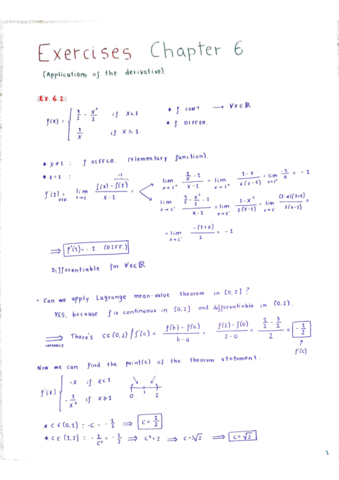 Exercises Chapter 6
(Applications of the derivative)
Ex 6.2:
f(x) = { 3/2 - x²/2 if x<1
1/x if x≥1
* f CONT → ∀x∈ℝ
* f DIFFER.
* x≠1 : f DIFFER (elementary function).
* x=1 :
f'(1) = lim x→1 f(x)-f(1) / x-1
lim x→1⁺ (1/x - 1)/(x-1) = lim x→1⁺ (1-x)/(x(x-1)) = lim x→1⁺ -1/x = -1
lim x→1⁻ (3/2 - x²/2 - 1)/(x-1) = lim x→1⁻ (1-x²)/(2(x-1)) = lim x→1⁻ (1-x)(1+x)/(2(x-1))
= lim x→1⁻ -(1+x)/2 = -1
⇒ f'(1) = -1 (DIFF.)
Differentiable for ∀x∈ℝ
· Can we apply Lagrange mean-value theorem in [0,2] ?
YES, because f is continuous in [0,2] and differentiable in (0,2).
⇒ There's c∈(0,2) / f'(c) = f(b)-f(a) / b-a = f(2)-f(0) / 2-0 = (1/2 - 3/2)/2 = -1/2
LAGRANGE
f'(c)
Now we can find the point(s) of the theorem statement.
f'(x) { -x if x<1
-1/x² if x≥1
0 1 2
* c∈(0,1) : -c = -1/2 ⇒ c = 1/2
* c∈(1,2) : -1/c² = -1/2 ⇒ c²=2 ⇒ c=±√2 ⇒ c=√2
1